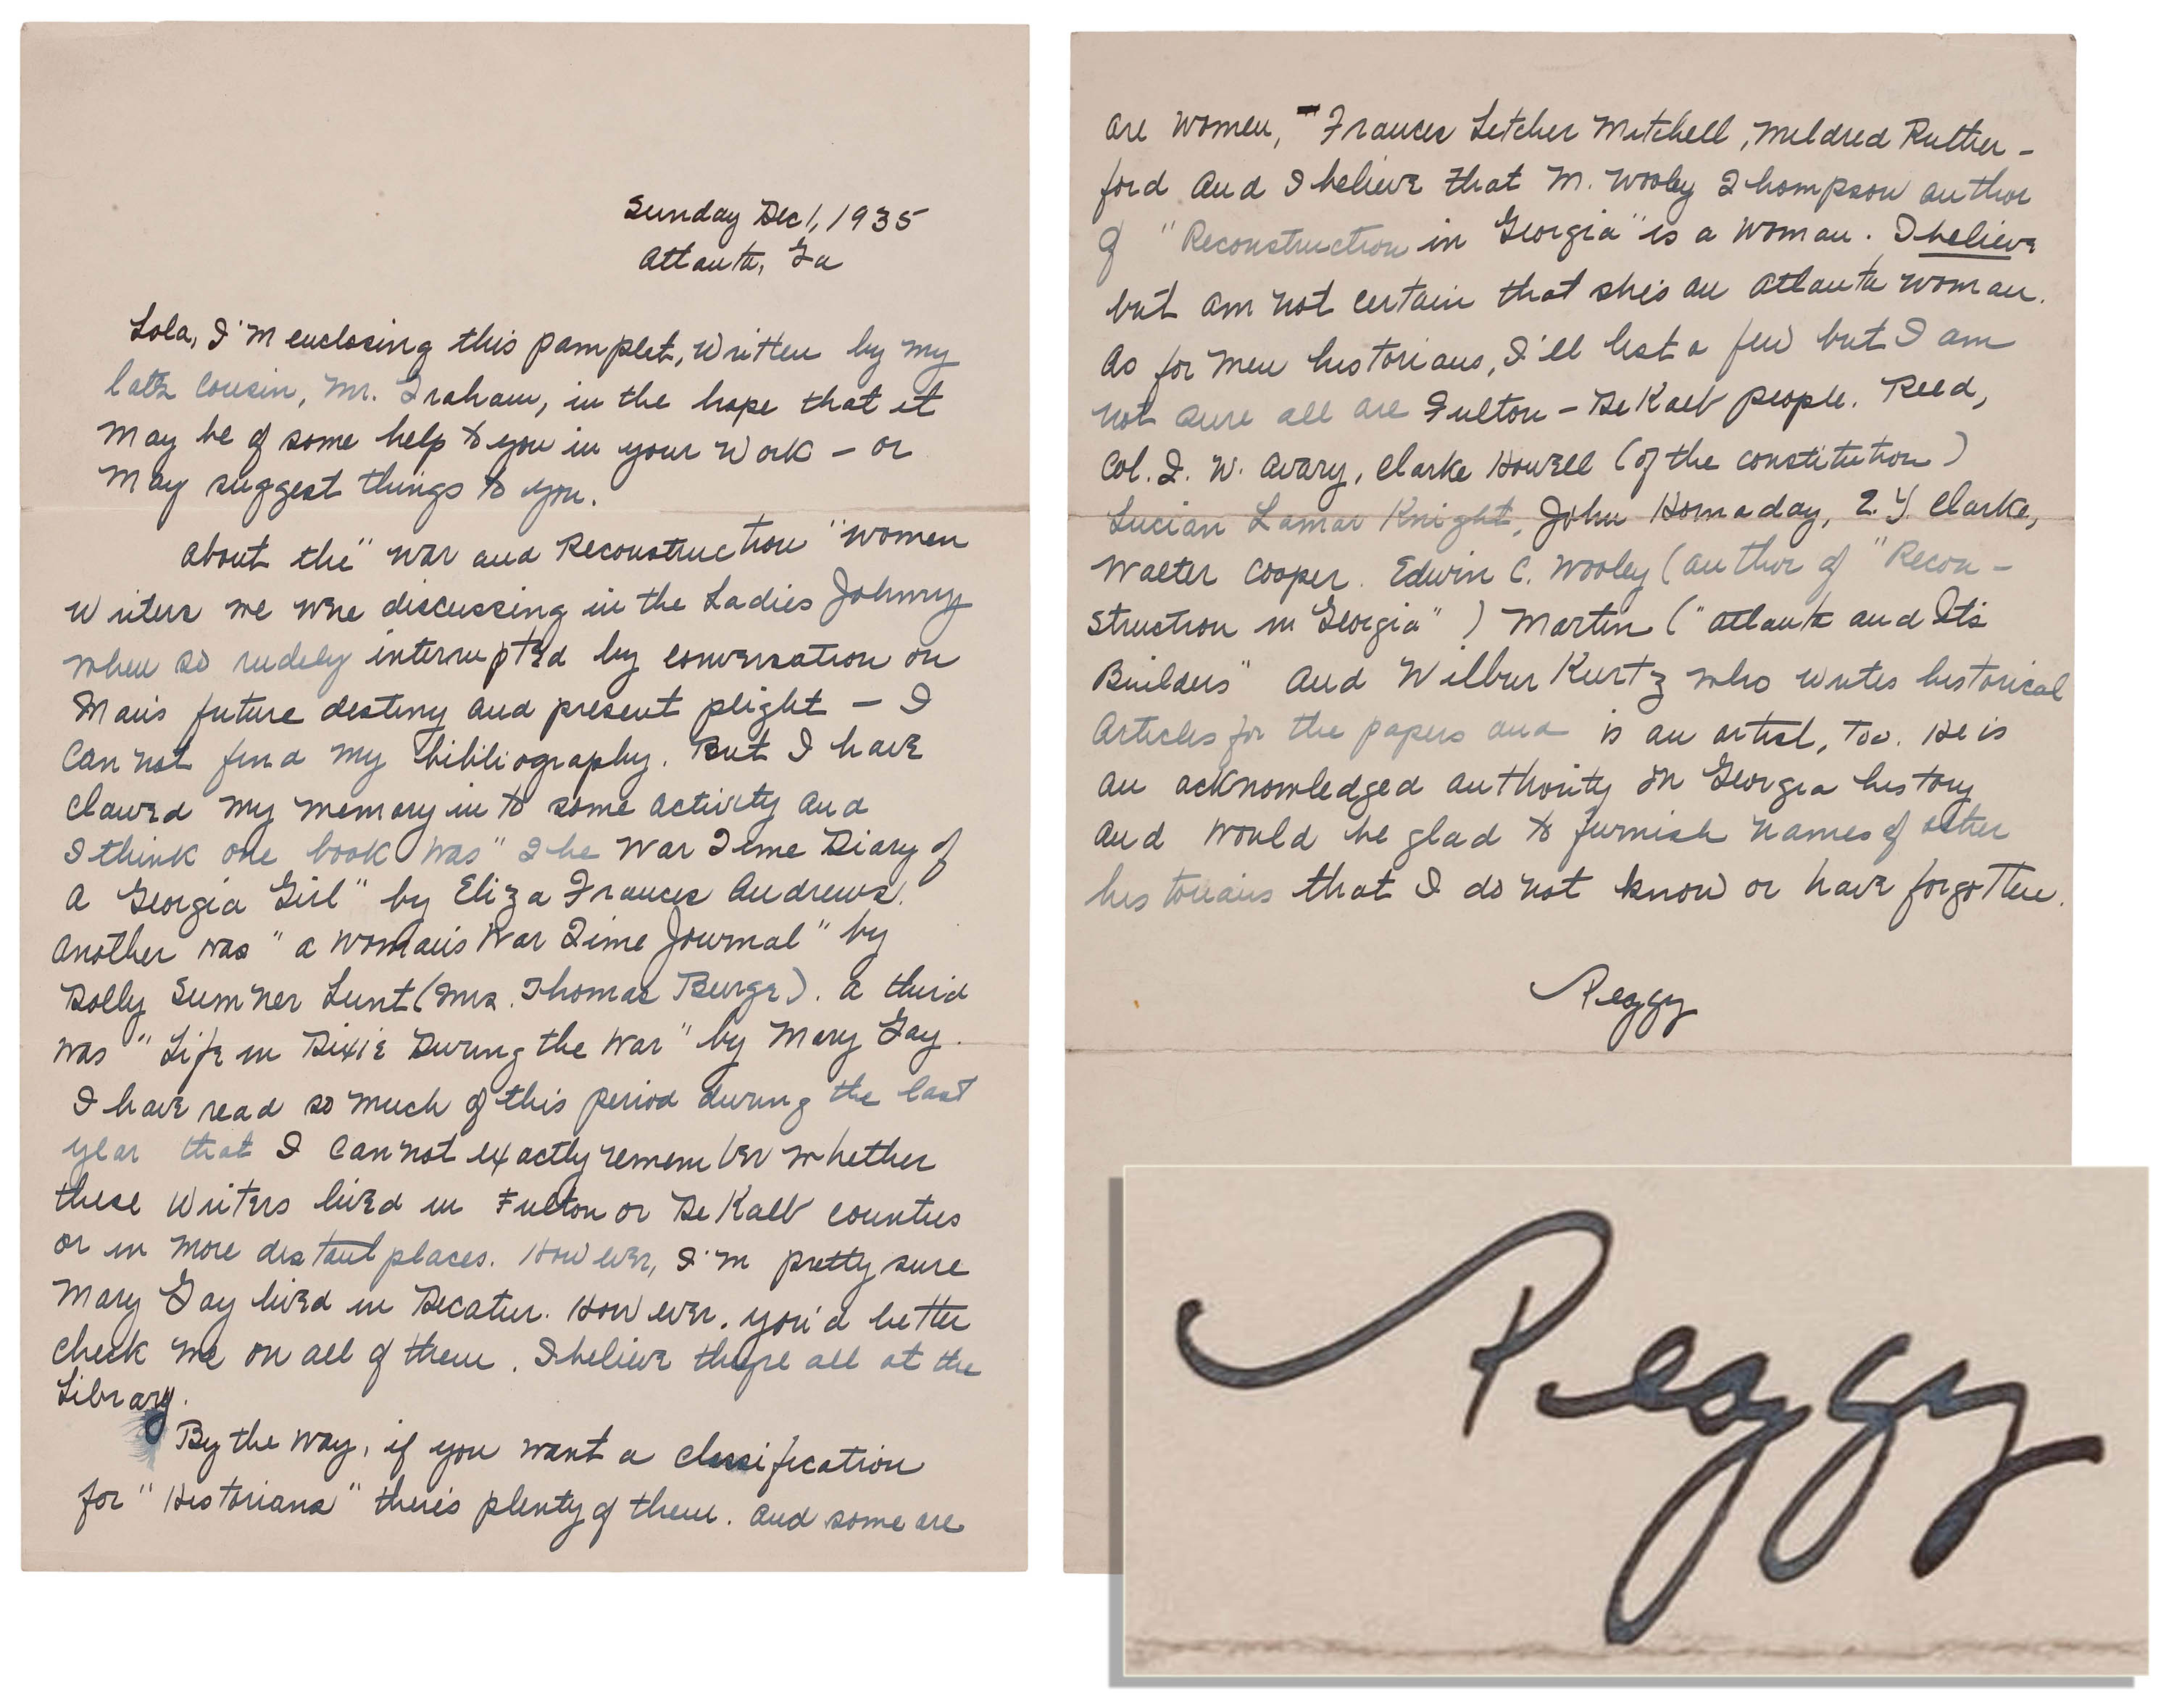 Sunday Dec 1, 1935
Atlanta, Ga
Lola, I'm enclosing this pamplet, written by my
late cousin, Mr. Graham, in the hope that it
may be of some help to you in your work – or
may suggest things to you.
About the "War and Reconstruction" women
writers we were discussing in the Ladies Johnny
when so rudely interrupted by conversation on
Man's future destiny and present plight – I
can not find my bibliography. But I have
clawed my memory in to some activity and
I think one book was "The War Time Diary of
a Georgia Girl" by Eliza Frances Andrews.
Another was "A Woman's War Time Journal" by
Dolly Sumner Lunt (Mrs. Thomas Burge). A third
was "Life in Dixie During the War" by Mary Gay.
I have read so much of this period during the last
year that I can not exactly remember whether
these writers lived in Fulton or De Kalb counties
or in more distant places. However, I'm pretty sure
Mary Gay lived in Decatur. However, you'd better
check me on all of them. I believe they're all at the
Library.
By the way, if you want a classification
for "Historians" there's plenty of them. And some are
are women, – Frances Letcher Mitchell, Mildred Ruther-
ford and I believe that M. Wooley Thompson author
of "Reconstruction in Georgia" is a woman. I believe
but am not certain that she's an Atlanta woman.
As for men historians, I'll list a few but I am
not sure all are Fulton – De Kalb people. Reed,
Col. I. W. Avary, Clarke Howell (of the Constitution)
Lucian Lamar Knight, John Hornaday, E. Y. Clarke,
Walter Cooper. Edwin C. Wooley (author of "Recon-
struction in Georgia") Martin ("Atlanta and Its
Builders" and Wilbur Kurtz who writes historical
articles for the papers and is an artist, too. He is
an acknowledged authority on Georgia history
and would be glad to furnish names of other
historians that I do not know or have forgotten.
Peggy
Peggy